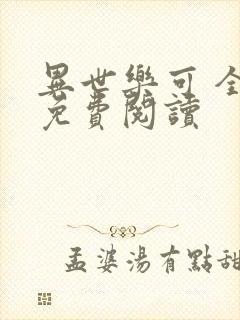 異世樂可 全
免費閱讀
孟婆湯有點甜